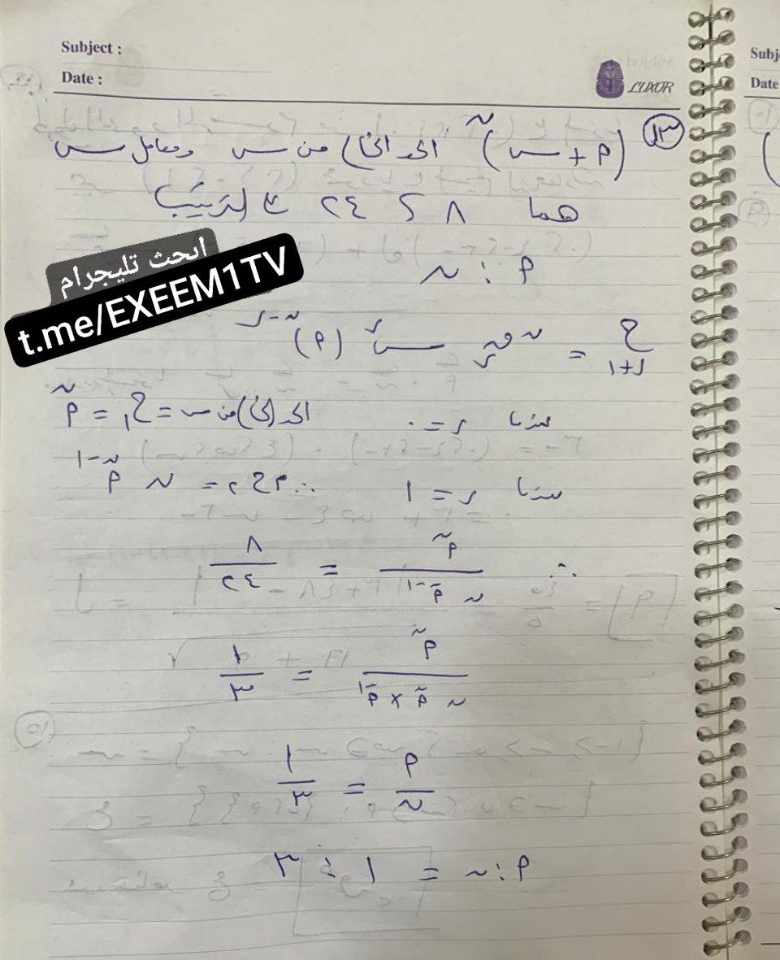 Subject :
Date :
LUXOR
Subj
Date
١٣ (م + س)ⁿ الحد الخالى من س ومعامل س
هما ٨ ، ٢٤ على الترتيب
م : ن
ابحث تليجرام
t.me/EXEEM1TV
ح ر+١ = ن ق ر س^ر (م)^ن-ر
عندما ر = ٠ الحد (الخالى) من س = ح١ = م^ن
عندما ر = ١ ∴ م ح٢ = ن م^ن-١
∴ م^ن / ن م^ن-١ = ٨ / ٢٤
م^ن / ن م^ن × م^-١ = ١ / ٣
م / ن = ١ / ٣
م : ن = ١ : ٣